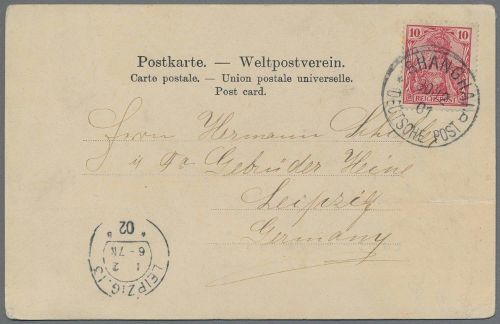 Postkarte. — Weltpostverein.
Carte postale. — Union postale universelle.
Post card.
10 10
REICHSPOST
SHANGHAI
01
DEUTSCHE POST
Herrn Hermann
Gebrüder Heine
Leipzig
Germany
LEIPZIG. 13
1 2
6-7N
* 02 *